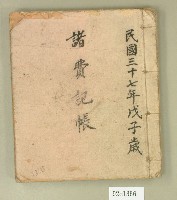 民國三十七年戊子歲
諸費記帳